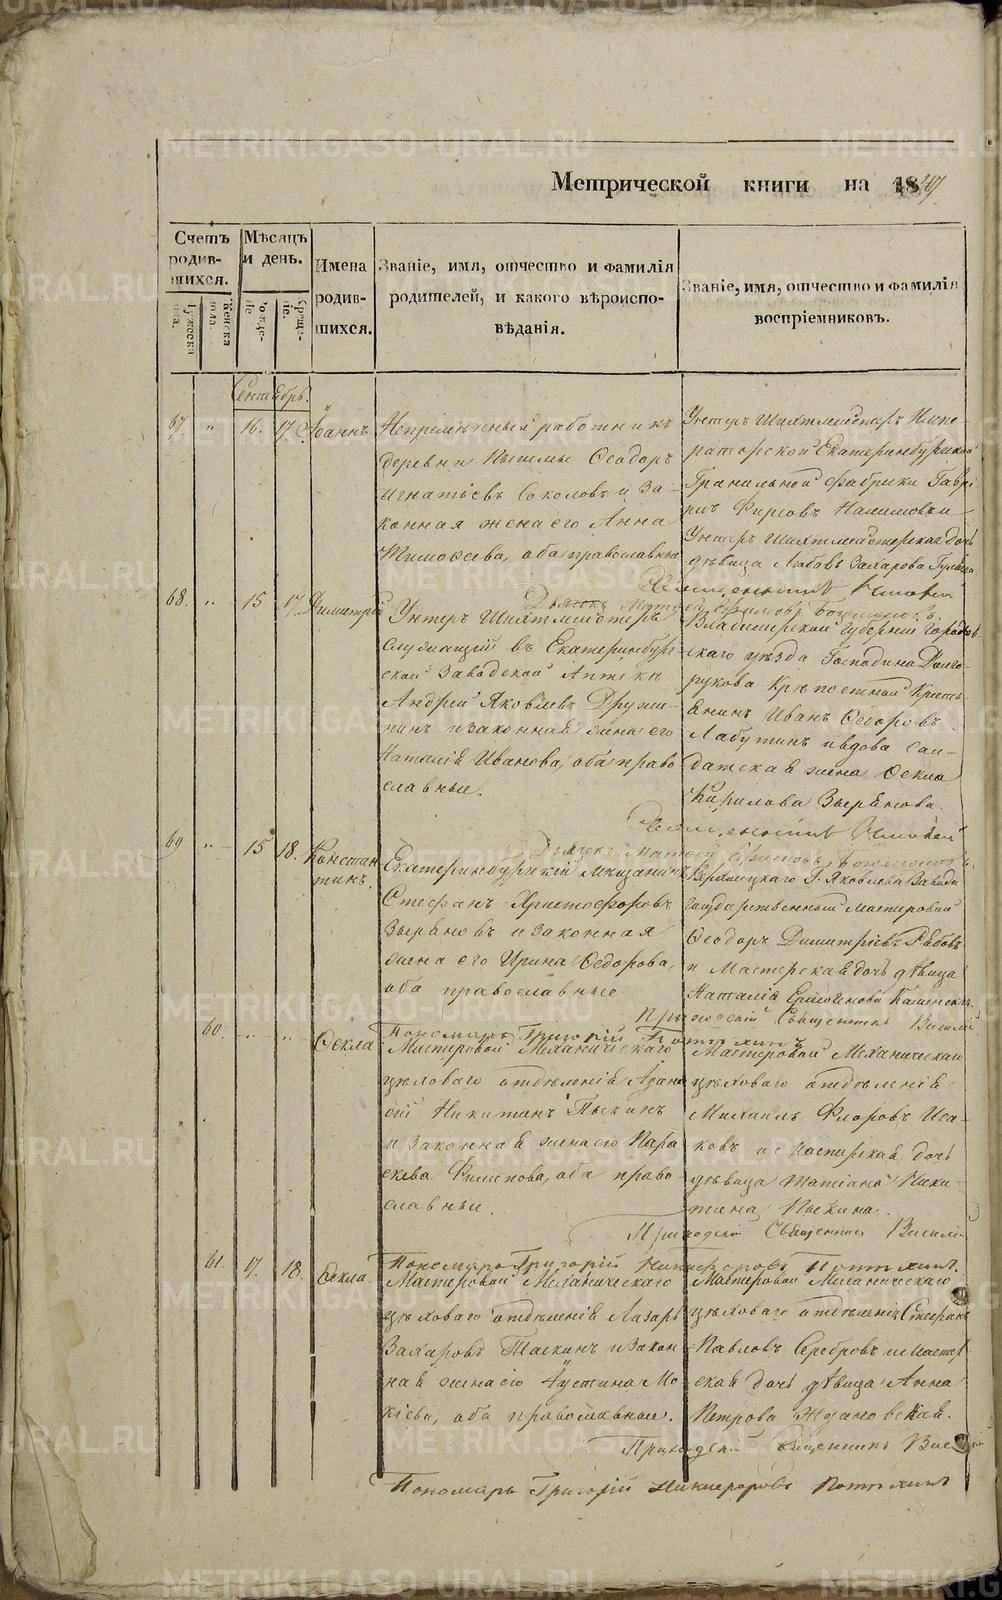 Метрической книги на 1847
Счетъ родив-шихся.
Мѣсяцъ и день.
Имена родив-шихся.
Званіе, имя, отчество и фамилія
родителей, и какого вѣроиспо-
вѣданія.
Званіе, имя, отчество и фамилія
воспріемниковъ.
Сентябрь.
67. " 16. 17. Іоаннъ
Непремѣнный работникъ
деревни Пышмы Ѳеодоръ
Игнатіевъ Соколовъ и за-
конная жена его Анна
Тимоѳеева, оба православные
Унтеръ Шихтмейстеръ Импе-
раторской Екатеринбургской
Гранильной фабрики Гаврі-
илъ Фирсовъ Налимовъ и
Унтеръ Шихтмейстерская дочь
дѣвица Любовь Захарова
68. " 15 17. Димитрій
Унтеръ Шихтмейстеръ
служащій въ Екатеринбург-
ской Заводской Аптекѣ
Андрей Яковлевъ Дружи-
нинъ и законная жена его
Наталія Иванова, оба право-
славные.
Владимирской Губерніи Горохов-
скаго уѣзда Господина Долго-
рукова Крѣпостной Крестъ-
янинъ Иванъ Ѳедоровъ
Лабутинъ и вдова Сол-
датская жена Ѳекла
Кирилова Зырянова.
69 " 15 18. Констан-
тинъ.
Екатеринбургскій мѣщанинъ
Стефанъ Христофоровъ
Зыряновъ и законная
жена его Ирина Ѳедорова,
оба православные
Г. Яковлева Завода
Государственный мастеровой
Ѳеодоръ Димитріевъ Рябовъ
и Мастерская дочь дѣвица
Наталія
Приходскій Священникъ Василій
Пономарь Григорій Потопкинъ
60. " " Ѳекла
Мастеровой Механическаго
цѣховаго отдѣленія
Никитинъ Пыкинъ
и законная жена его Пара-
скева Филипова, оба право-
славные.
Мастеровой Механическаго
цѣховаго отдѣленія
Михаилъ Флоровъ Иса-
ковъ и мастерская дочь
дѣвица Татіана Ники-
тина Пыкина.
Приходскій Священникъ Василій
Пономарь Григорій Никифоровъ
61. 17. 18. Ѳекла.
Мастеровой Механическаго
цѣховаго отдѣленія Лазарь
Захаровъ Таскинъ и закон-
ная жена его Іустина Мо-
кіева, оба православные.
Мастеровой Механическаго
цѣховаго отдѣленія Стефанъ
Павловъ Серебровъ и мастер-
ская дочь дѣвица Анна
Петрова Ждановская.
Приходскій Священникъ Василій
Пономарь Григорій Никифоровъ
METRIKI.GASO-URAL.RU